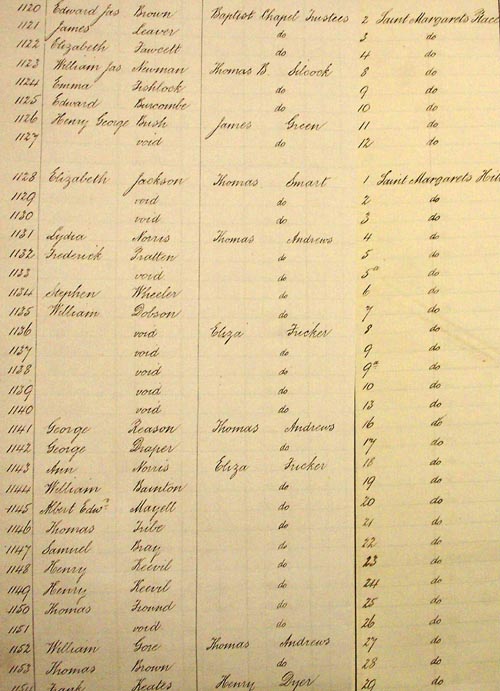 1120 Edward Jas Brown Baptist Chapel Trustees 2 Saint Margarets Place
1121 James Leaver do 3 do
1122 Elizabeth Fawcett do 4 do
1123 William Jas Newman Thomas B. Silcock 8 do
1124 Emma Fishlock do 9 do
1125 Edward Burcombe do 10 do
1126 Henry George Bush James Green 11 do
1127 void do 12 do
1128 Elizabeth Jackson Thomas Smart 1 Saint Margarets Hill
1129 void do 2 do
1130 void do 3 do
1131 Lydia Norris Thomas Andrews 4 do
1132 Frederick Pratten do 5 do
1133 void do 5a do
1134 Stephen Wheeler do 6 do
1135 William Dobson do 7 do
1136 void Eliza Fricker 8 do
1137 void do 9 do
1138 void do 9a do
1139 void do 10 do
1140 void do 13 do
1141 George Reason Thomas Andrews 16 do
1142 George Draper do 17 do
1143 Ann Norris Eliza Fricker 18 do
1144 William Bainton do 19 do
1145 Albert Edwd Mayell do 20 do
1146 Thomas Tribe do 21 do
1147 Samuel Bray do 22 do
1148 Henry Keevil do 23 do
1149 Henry Keevil do 24 do
1150 Thomas Found do 25 do
1151 void do 26 do
1152 William Gore Thomas Andrews 27 do
1153 Thomas Brown do 28 do
1154 Frank Keates Henry Dyer 29 do